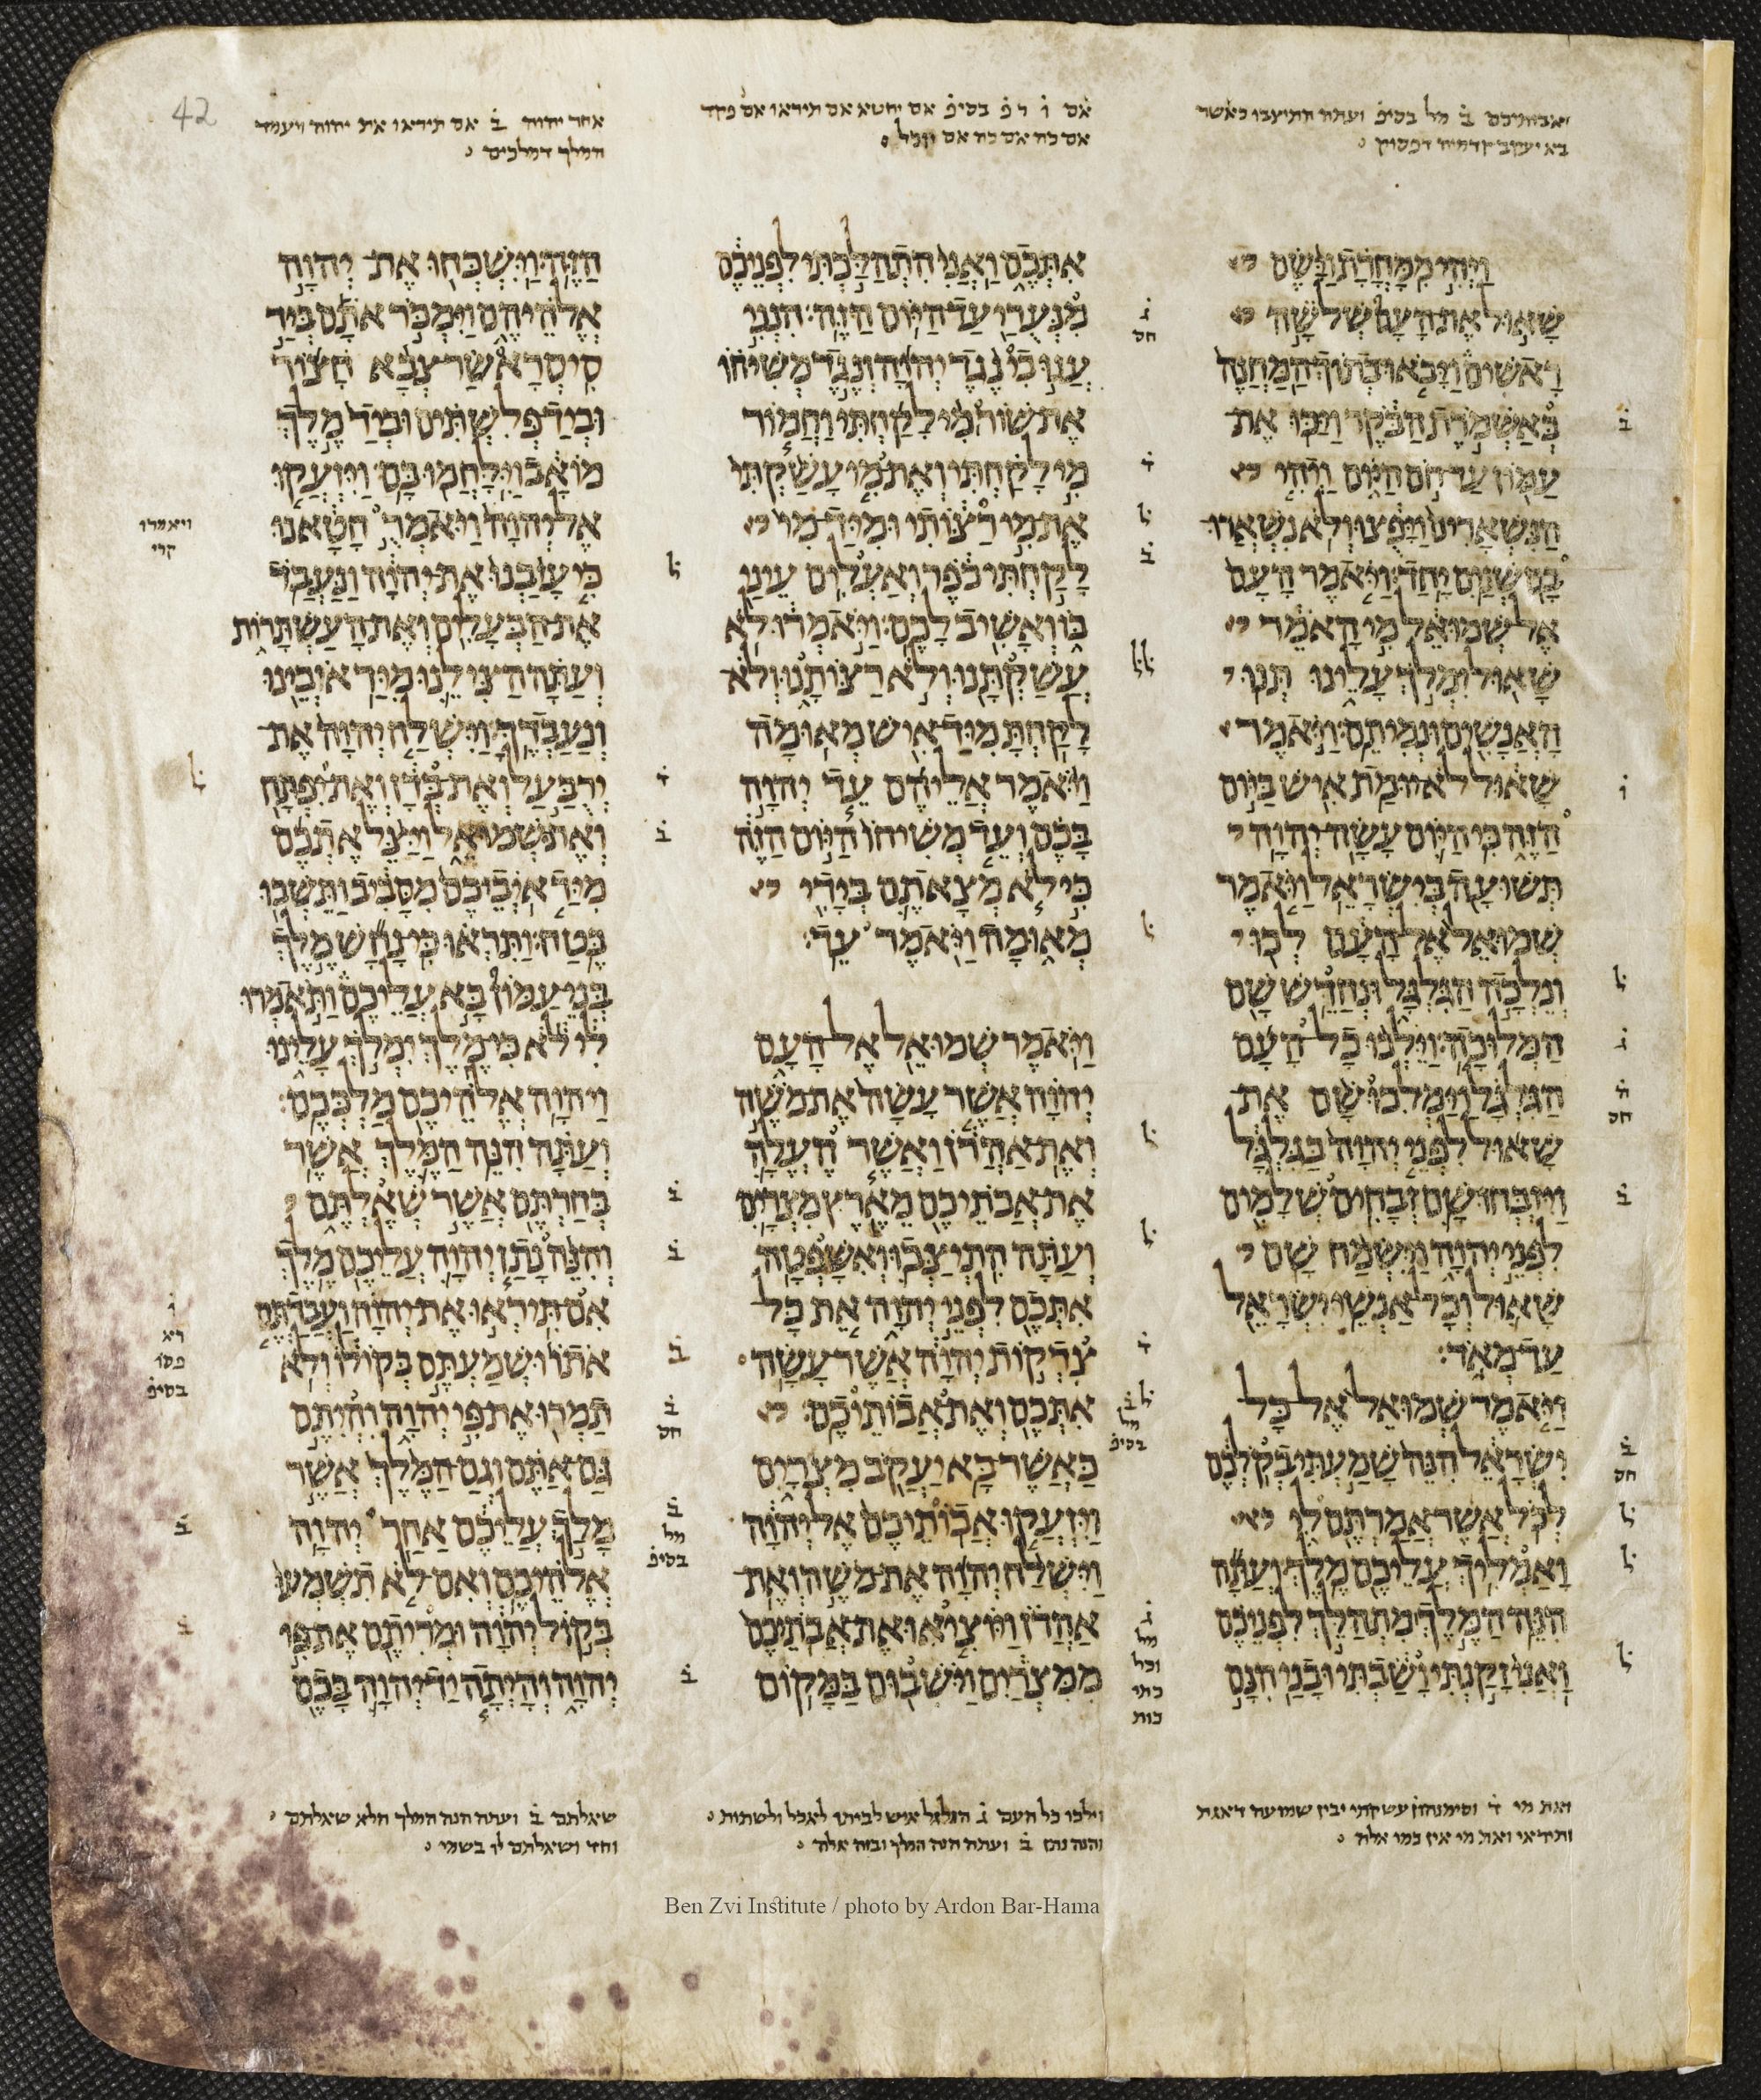 ואבותיכם ב̇ מל בסיפ̇ ועתה התיצבו כאשר
בא יעקב קדמיה דפסוק
אם ו̇ ר פ̇ בסיפ̇ אם יחטא אם תיראו אם פקד
אם כה אם כה אם
אחר יהוה ב̇ אם תיראו את יהוה ויעמד
המלך דמלכים
ויהי ממחרת וישם
שאול את העם שלשה
ראשים ויבאו בתוך המחנה
באשמרת הבקר ויכו את
עמון עד חם היום ויהי
הנשארים ויפצו ולא נשארו
בם שנים יחד׃ ויאמר העם
אל שמואל מי האמר
שאול ימלך עלינו תנו
האנשים ונמיתם׃ ויאמר
שאול לא יומת איש ביום
הזה כי היום עשה יהוה
תשועה בישראל׃ ויאמר
שמואל אל העם לכו
ונלכה הגלגל ונחדש שם
המלוכה׃ וילכו כל העם
הגלגל וימלכו שם את
שאול לפני יהוה בגלגל
ויזבחו שם זבחים שלמים
לפני יהוה וישמח שם
שאול וכל אנשי ישראל
עד מאד׃
ויאמר שמואל אל כל
ישראל הנה שמעתי בקלכם
לכל אשר אמרתם לי
ואמליך עליכם מלך׃ ועתה
הנה המלך מתהלך לפניכם
ואני זקנתי ושבתי ובני הנם
אתכם ואני התהלכתי לפניכם
מנערי עד היום הזה׃ הנני
ענו בי נגד יהוה ונגד משיחו
את שור מי לקחתי וחמור
מי לקחתי ואת מי עשקתי
את מי רצותי ומיד מי
לקחתי כפר ואעלים עיני
בו ואשיב לכם׃ ויאמרו לא
עשקתנו ולא רצותנו ולא
לקחת מיד איש מאומה׃
ויאמר אליהם עד יהוה
בכם ועד משיחו היום הזה
כי לא מצאתם בידי
מאומה ויאמר עד׃
ויאמר שמואל אל העם
יהוה אשר עשה את משה
ואת אהרן ואשר העלה
את אבתיכם מארץ מצרים׃
ועתה התיצבו ואשפטה
אתכם לפני יהוה את כל
צדקות יהוה אשר עשה
אתכם ואת אבותיכם׃
כאשר בא יעקב מצרים
ויזעקו אבותיכם אל יהוה
וישלח יהוה את משה ואת
אהרן ויוציאו את אבתיכם
ממצרים וישבום במקום
הזה׃ וישכחו את יהוה
אלהיהם וימכר אתם ביד
סיסרא שר צבא חצור
וביד פלשתים וביד מלך
מואב וילחמו בם׃ ויזעקו
אל יהוה ויאמר חטאנו
כי עזבנו את יהוה ונעבד
את הבעלים ואת העשתרות
ועתה הצילנו מיד איבינו
ונעבדך׃ וישלח יהוה את
ירבעל ואת בדן ואת יפתח
ואת שמואל ויצל אתכם
מיד איביכם מסביב ותשבו
בטח׃ ותראו כי נחש מלך
בני עמון בא עליכם ותאמרו
לי לא כי מלך ימלך עלינו
ויהוה אלהיכם מלככם׃
ועתה הנה המלך אשר
בחרתם אשר שאלתם
והנה נתן יהוה עליכם מלך׃
אם תיראו את יהוה ועבדתם
אתו ושמעתם בקולו ולא
תמרו את פי יהוה והיתם
גם אתם וגם המלך אשר
מלך עליכם אחר יהוה
אלהיכם׃ ואם לא תשמעו
בקול יהוה ומריתם את פי
יהוה והיתה יד יהוה בכם
ויאמרו
קרי
ואת מי ד̇ וסימנהון עשקתי יבין שמועה דאגת
ותיראי ואת מי אין כמו אלה
וילכו כל העם ג̇ הגלגל איש לביתו לאכל ולשתות
והנה נתן ב̇ ועתה הנה המלך ובזה אלה
שאלתם ב̇ ועתה הנה המלך הלא שאלתם
וחד ושאלתם לי בשמי
42
Ben Zvi Institute / photo by Ardon Bar-Hama